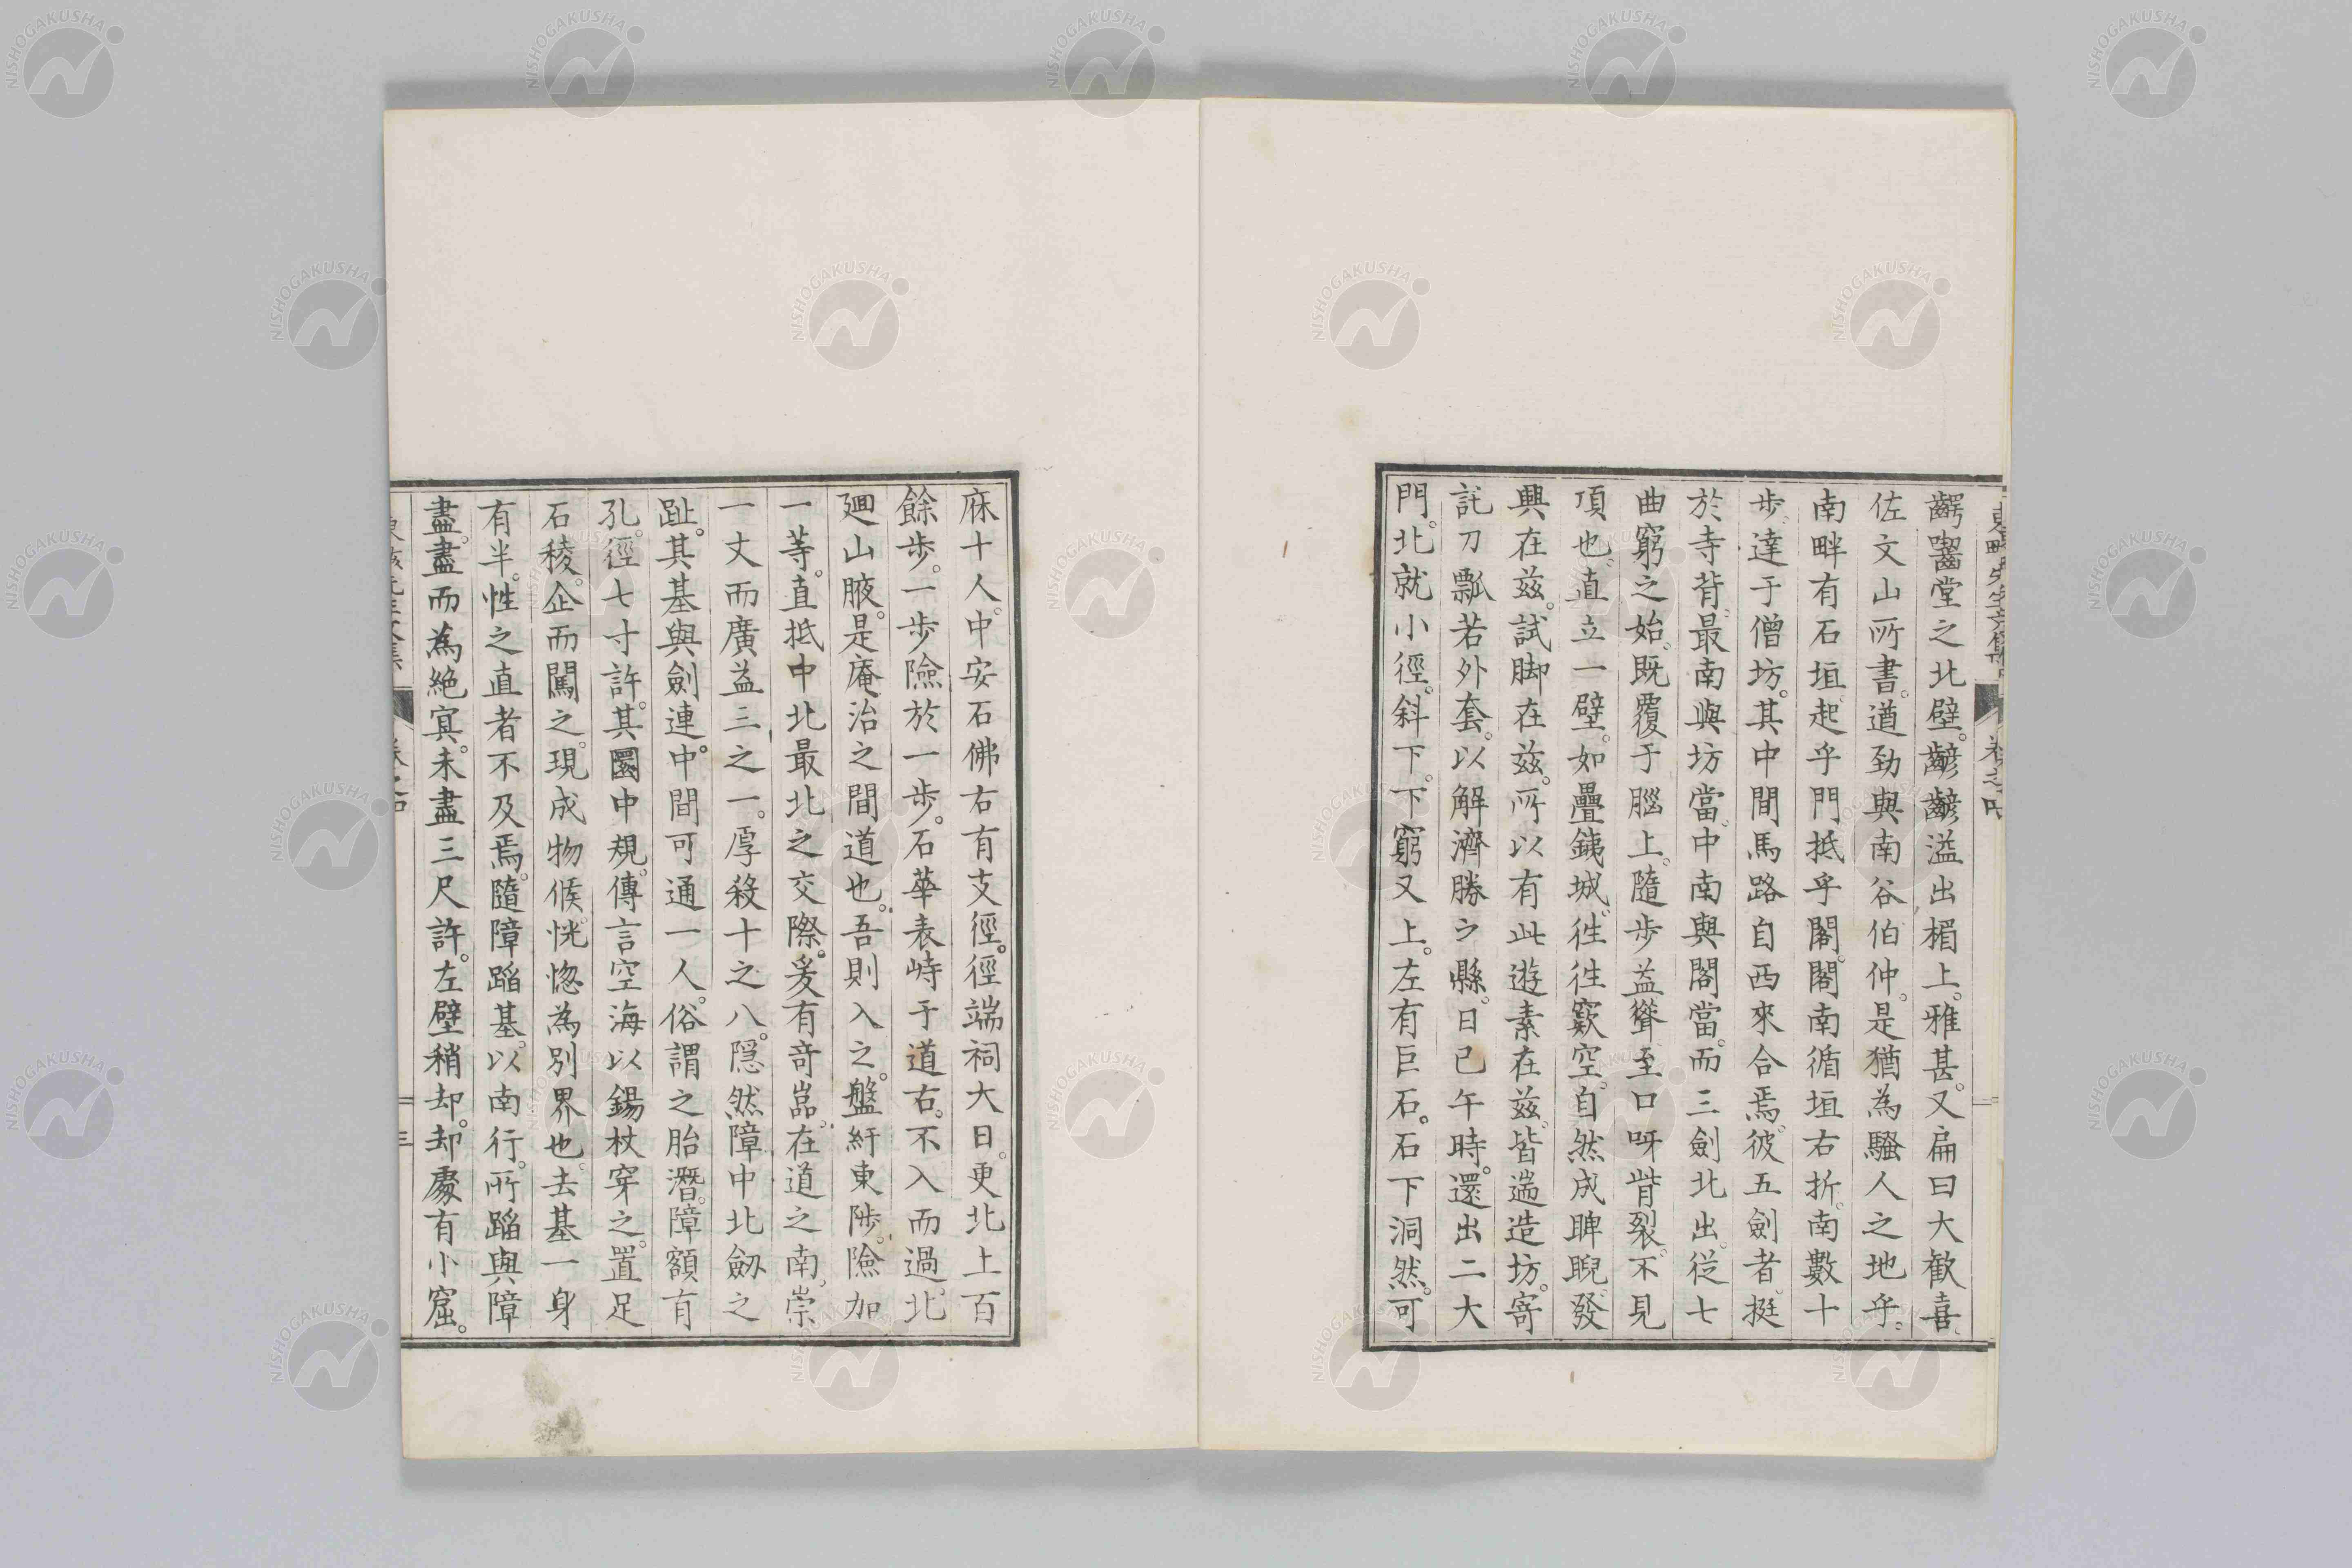 齶囓堂之北壁。齴齴溢出楣上。雅甚。又扁曰大歓喜。
佐文山所書。遒勁與南谷伯仲。是猶為騷人之地乎。
南畔有石垣。起乎門抵乎閣。閣南循垣右折。南數十
步。達于僧坊。其中間馬路自西來合焉。彼五劍者。挺
於寺背。最南與坊當。中南與閣當。而三劍北出。從七
曲窮之始。既覆于腦上。隨步益聳。至口呀眥裂。不見
項也。直立一壁。如疊銕城。徃徃竅空。自然成睥睨。發
興在茲。試脚在茲。所以有此遊素在茲。皆遄造坊。寄
託刀瓢若外套。以解濟勝之縣。日已午時。還出二大
門。北就小徑。斜下。下窮又上。左有巨石。石下洞然。可
庥十人。中安石佛。右有支徑。徑端祠大日。更北上百
餘步。一步險於一步。石華表峙于道右。不入而過。北
廽山腋。是庵治之間道也。吾則入之。盤紆東陟。險加
一等。直抵中北最北之交際。爰有奇嵓。在道之南。崇
一丈而廣益三之一。厚殺十之八。隠然障中北劔之
趾。其基與劍連。中間可通一人。俗謂之胎潛。障額有
孔。徑七寸許。其圜中規。傳言空海以錫杖穿之。置足
石稜。企而闖之。現成物候。恍惚為別界也。去基一身
有半。性之直者不及焉。隨障蹈基。以南行。所蹈與障
盡。盡而為絕冥。未盡三尺許。左壁稍却。却處有小窟。